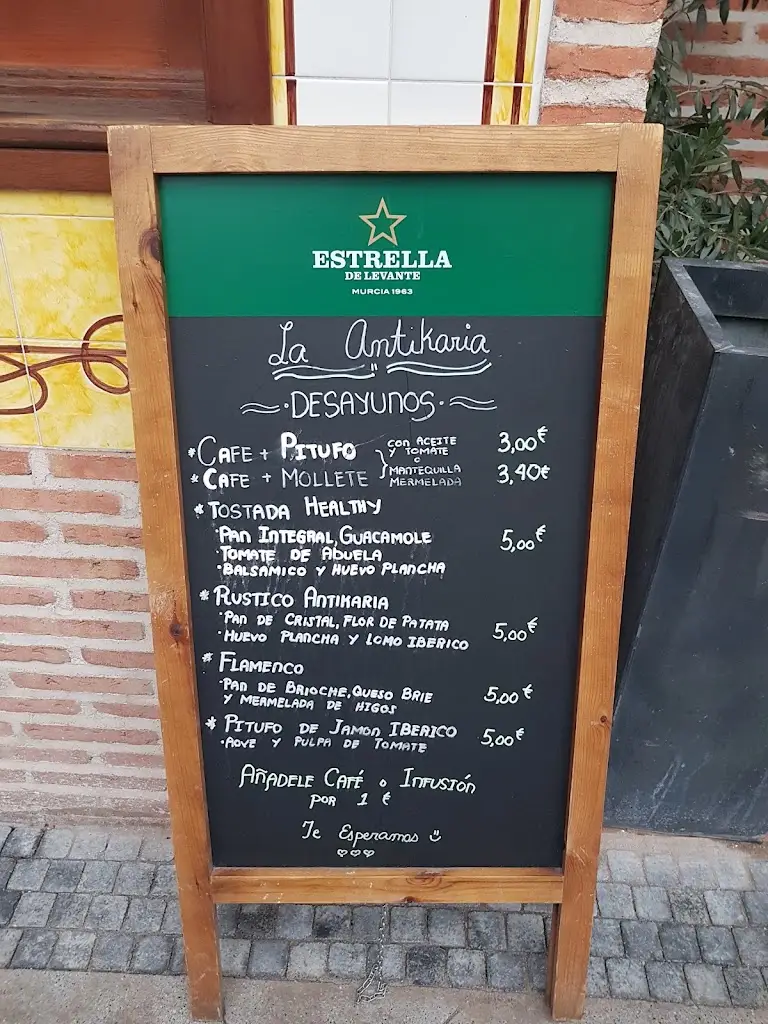 ESTRELLA
DE LEVANTE
MURCIA 1963
La Antikaria
DESAYUNOS
* CAFE + PITUFO CON ACEITE Y TOMATE 3,00€
O
* CAFE + MOLLETE MANTEQUILLA MERMELADA 3,40€
* TOSTADA HEALTHY
· PAN INTEGRAL, GUACAMOLE 5,00€
· TOMATE DE ABUELA
· BALSAMICO Y HUEVO PLANCHA
* RUSTICO ANTIKARIA
· PAN DE CRISTAL, FLOR DE PATATA 5,00€
· HUEVO PLANCHA Y LOMO IBERICO
* FLAMENCO
· PAN DE BRIOCHE, QUESO BRIE 5,00€
Y MERMELADA DE HIGOS
* PITUFO DE JAMON IBERICO 5,00€
· AOVE Y PULPA DE TOMATE
AÑADELE CAFÉ O INFUSIÓN
POR 1 €
Te Esperamos